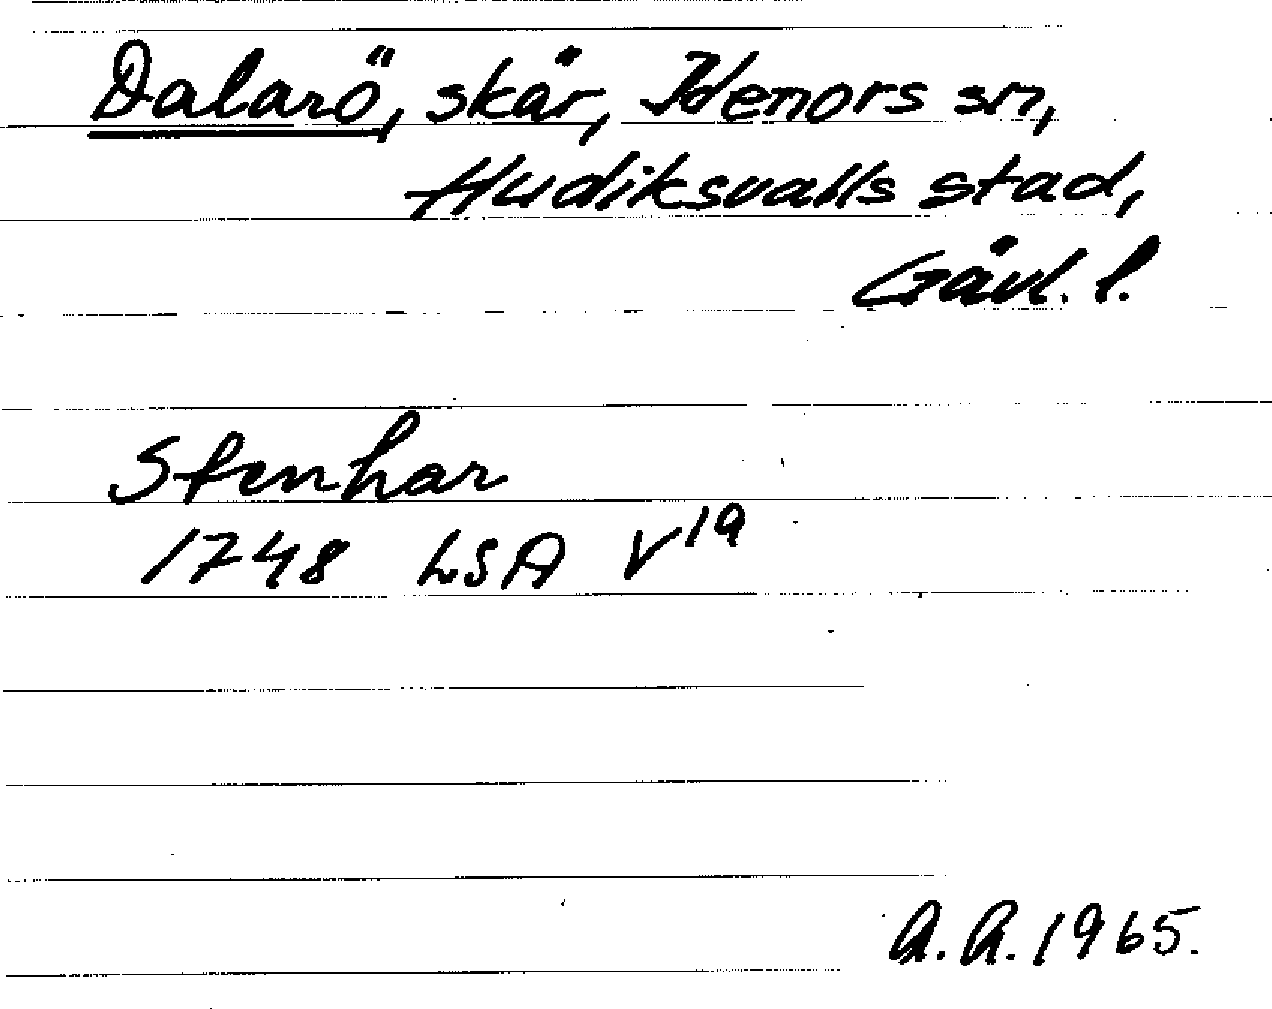 Dalarö, skär, Idenors sn,
Hudiksvalls stad,
Gävl. l.
Stenhar
1748 LSA V 19
A.A. 1965.